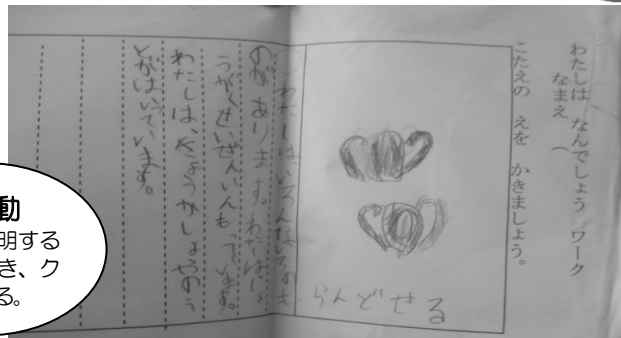 わたしは なんでしょう ワーク
なまえ（
こたえの えを かきましょう。
らんどせる
わたしはいろんないろのも
のが あります。わたしはしょ
うがくせいぜんいんもっています。
わたしは、きょうかしょやのう
とがはいています。
動
明する
き、ク
る。